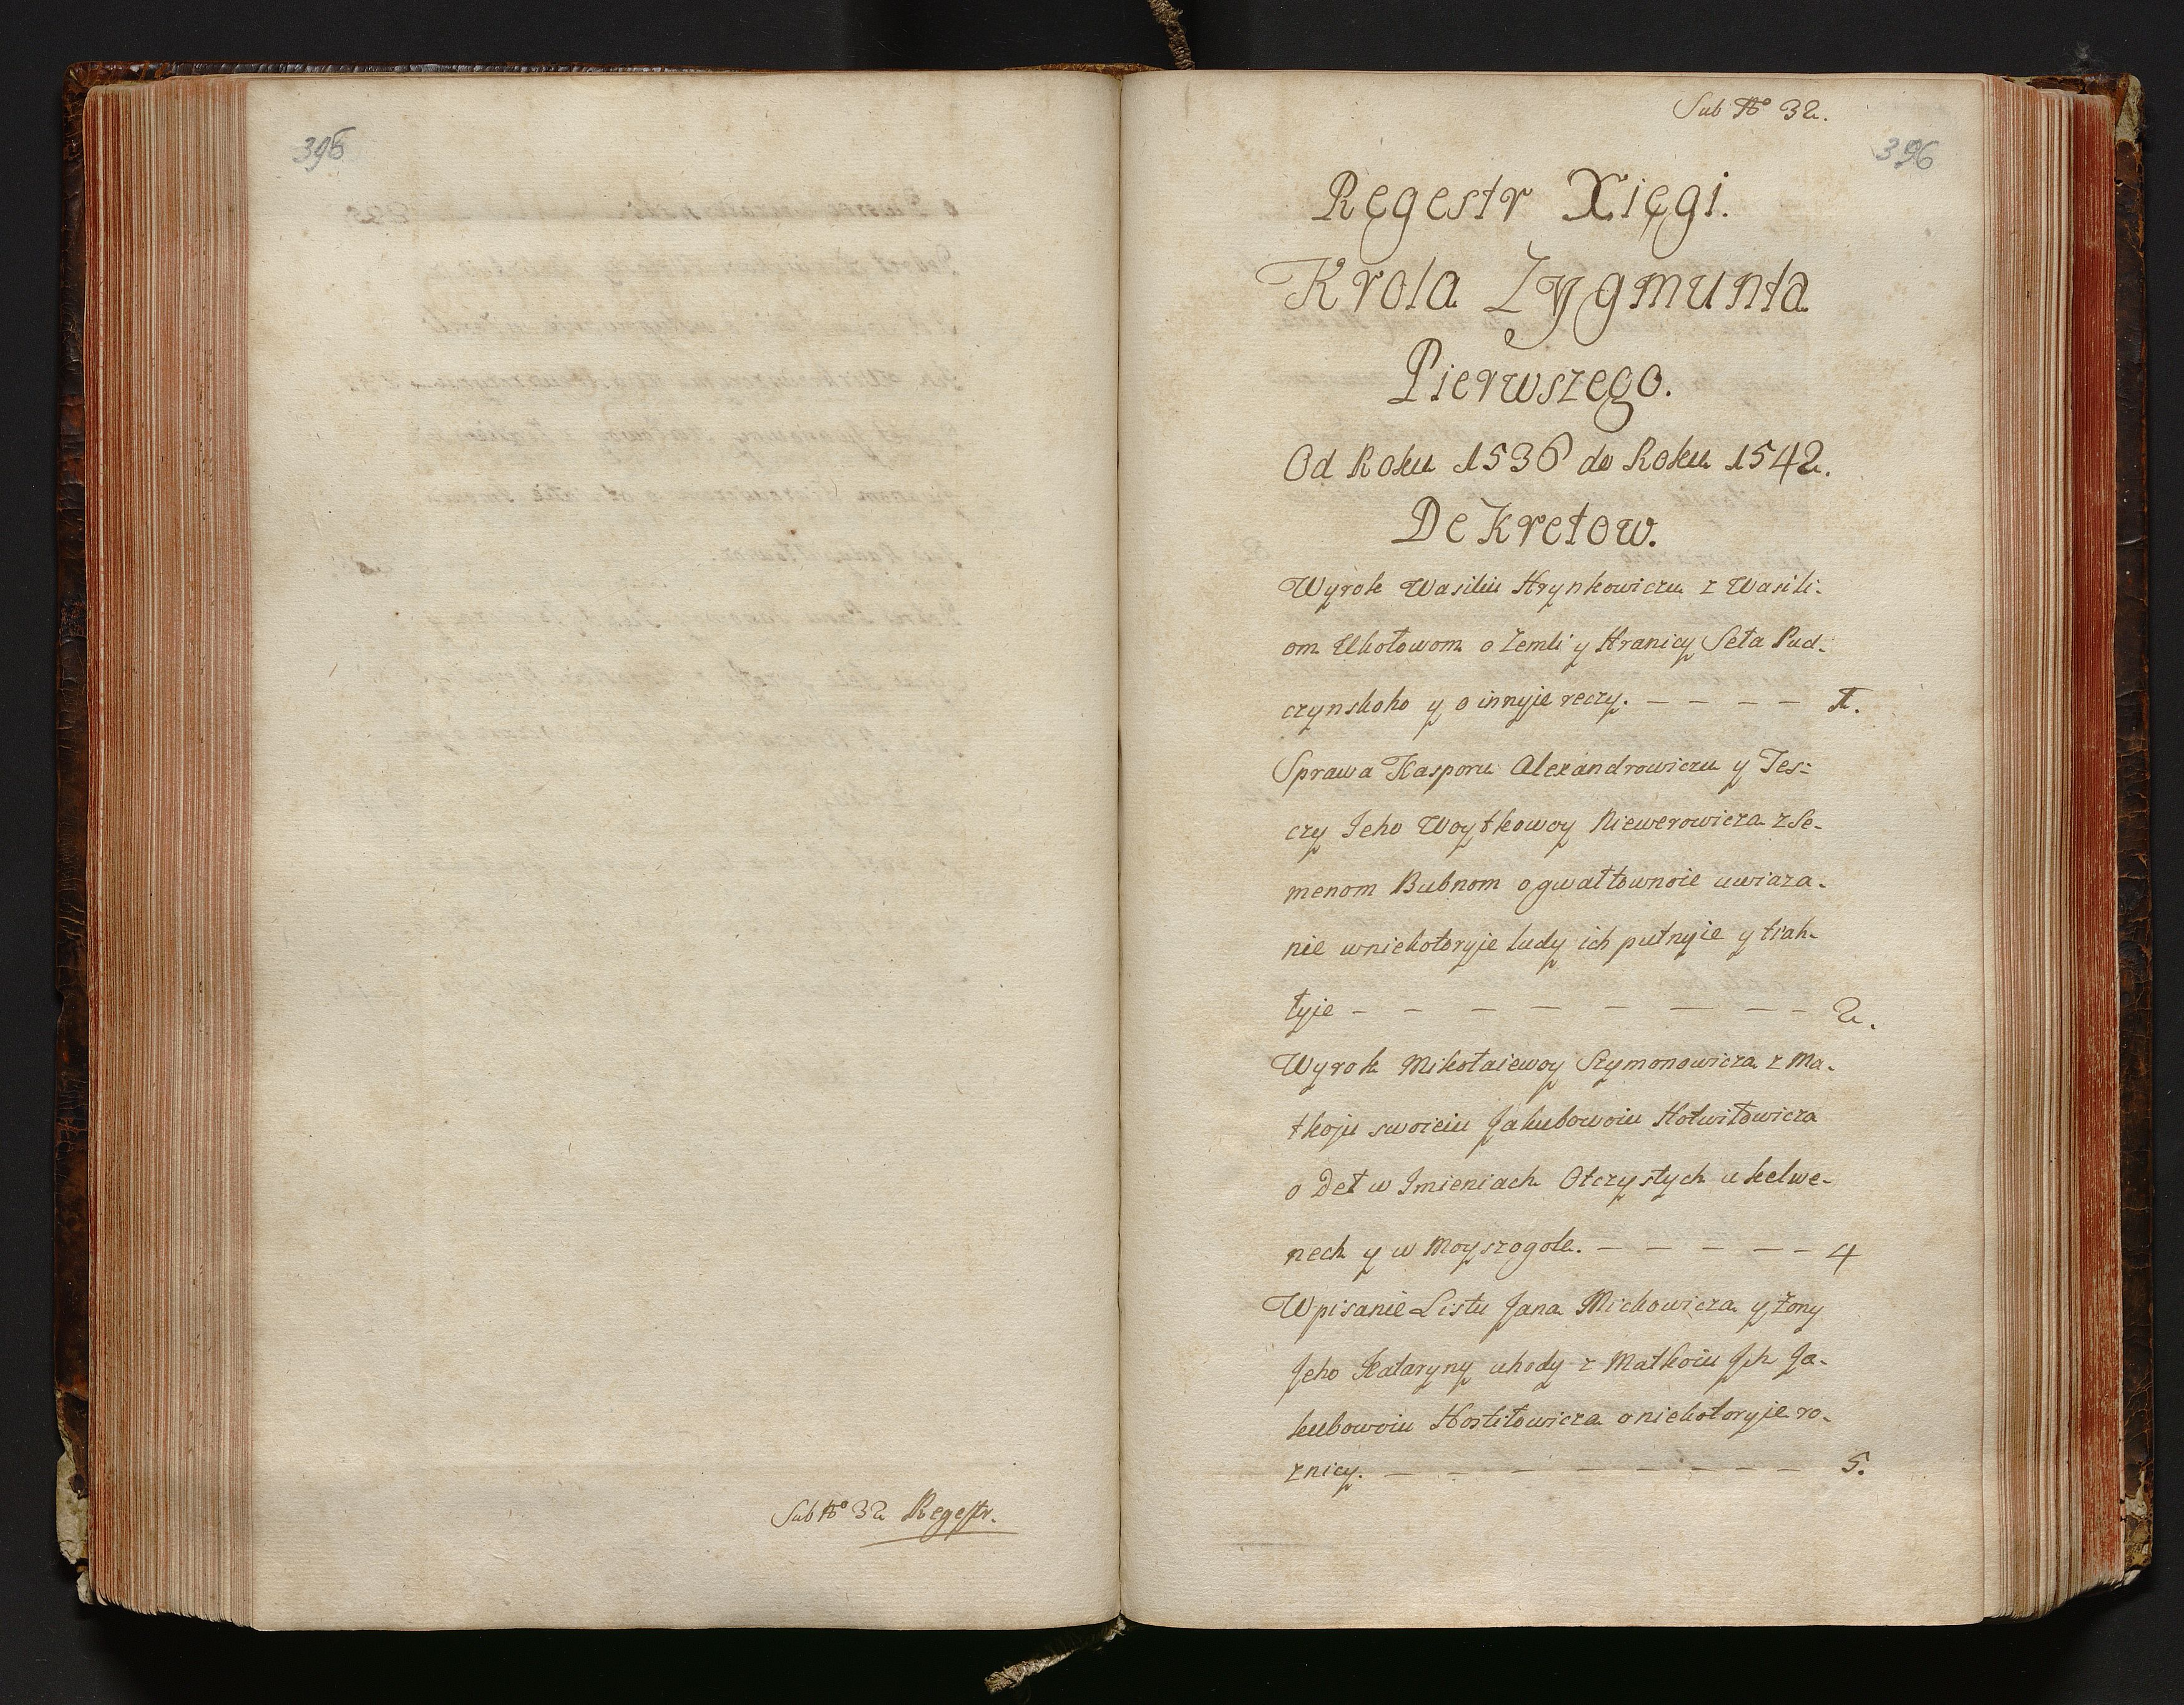 396
Sub No 32 Regestr.
Sub No 32.
396
Regestr Xięgi.
Krola Zygmunta
Pierwszego.
Od Roku 1536 do Roku 1542.
Dekretow.
Wyrok Wasiliu Hrynkowiczu z Wasili-
om Ukołowom o Zemli y Hranicy Seła Pud-
czynskoho y o innyie reczy. — — — — 1.
Sprawa Kasporu Alexandrowiczu y Tes-
czy Jeho Woytkowoy Niewerowicza z Se-
menom Bubnom o gwałtownoie uwiaza-
nie w niekotoryje ludy ich putnyie y tiah-
łyie — — — — — — — — 2.
Wyrok Mikołaiewoy Szymonowicza z Ma-
tkoju swoieiu Jakubowoiu Kotwiłowicza
o Deł w Imieniach Otczystych u kelwe-
nech y w Moyszogole. — — — — — 4
Wpisanie Listu Jana Michowicza y żony
Jeho Kataryny uhody z Matkoiu Jch Ja-
kubowoiu Kostiłowicza o niekotoryje ro-
znicy. — — — — — — — — 5.